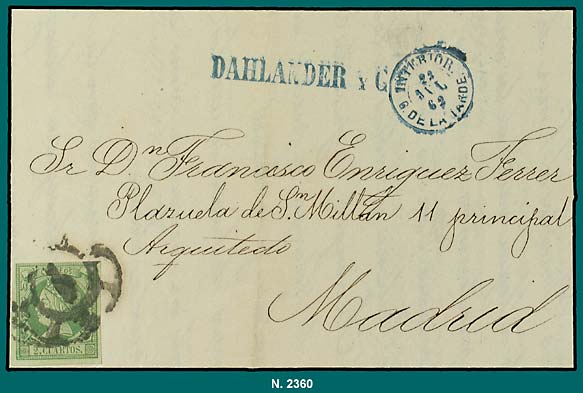 DAHLANDER Y C
INTERIOR.
22
JUL
62
6 DE LA TARDE
Sr Dn Francisco Enriquez Ferrer
Plazuela de Sn Millan 11 principal
Arquitecto
Madrid
2. CUARTOS.
N. 2360